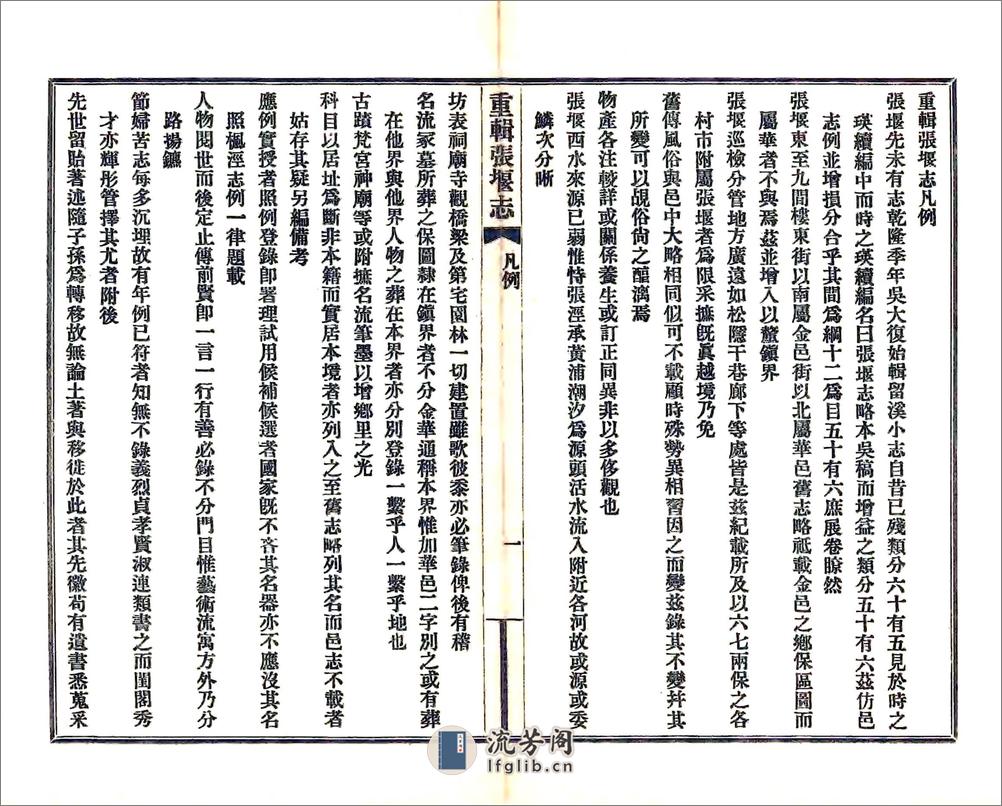 重輯張堰志凡例
張堰先未有志乾隆季年吳大復始輯留溪小志自昔已殘類分六十有五見於時之
瑛續編中而時之瑛續編名曰張堰志略本吳稿而增益之類分五十有六茲仿邑
志例並增損分合乎其間爲綱十二爲目五十有六庶展卷瞭然
張堰東至九間樓東街以南屬金邑街以北屬華邑舊志略祗載金邑之鄉保區圖而
屬華者不與焉茲並增入以釐鎭界
張堰巡檢分管地方廣遠如松隱干巷廊下等處皆是茲紀載所及以六七兩保之各
村市附屬張堰者爲限采摭旣眞越境乃免
舊傳風俗與邑中大略相同似可不載顧時殊勢異相習因之而變茲錄其不變幷其
所變可以覘俗尙之醕漓焉
物產各注較詳或關係養生或訂正同異非以多侈觀也
張堰西水來源已弱惟恃張涇承黃浦潮汐爲源頭活水流入附近各河故或源或委
鱗次分晰
重輯張堰志
凡例
一
坊表祠廟寺觀橋梁及第宅園林一切建置雖歌彼黍亦必筆錄俾後有稽
名流冢墓所葬之保圖隸在鎭界者不分金華通稱本界惟加華邑二字別之或有葬
在他界與他界人物之葬在本界者亦分別登錄一繫乎人一繫乎地也
古蹟梵宮神廟等或附摭名流筆墨以增鄉里之光
科目以居址爲斷非本籍而實居本境者亦列入之至舊志略列其名而邑志不載者
姑存其疑另編備考
應例實授者照例登錄卽署理試用候補候選者國家旣不吝其名器亦不應沒其名
照楓涇志例一律題載
人物閱世而後定止傳前賢卽一言一行有善必錄不分門目惟藝術流寓方外乃分
路揚鑣
節婦苦志每多沉埋故有年例已符者知無不錄義烈貞孝賢淑連類書之而閨閣秀
才亦輝彤管擇其尤者附後
先世留貽著述隨子孫爲轉移故無論土著與移徙於此者其先徽苟有遺書悉蒐采
流芳阁
lfglib.cn